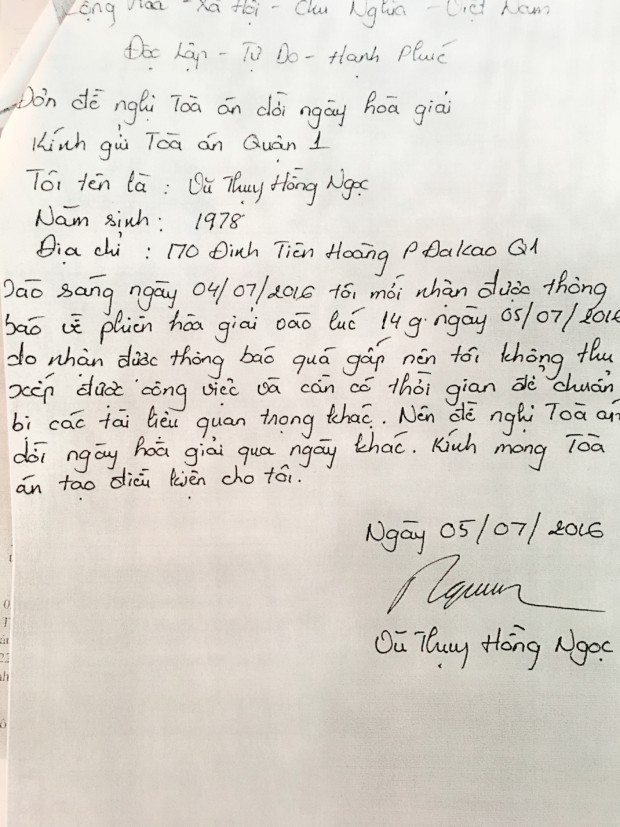 Cộng Hòa - Xã Hội - Chủ Nghĩa - Việt Nam
Độc Lập - Tự Do - Hạnh Phúc
Đơn đề nghị Toà án dời ngày hoà giải
Kính gửi Toà án Quận 1
Tôi tên là : Vũ Thụy Hồng Ngọc
Năm sinh : 1978
Địa chỉ : 170 Đinh Tiên Hoàng P Đakao Q1
Vào sáng ngày 04/07/2016 tôi mới nhận được thông
báo về phiên hòa giải vào lúc 14 g. ngày 05/07/2016
do nhận được thông báo quá gấp nên tôi không thu
xếp được công việc và cần có thời gian để chuẩn
bị các tài liệu quan trọng khác. Nên đề nghị Toà án
dời ngày hoà giải qua ngày khác. Kính mong Toà
án tạo điều kiện cho tôi.
Ngày 05/07/2016
Vũ Thụy Hồng Ngọc